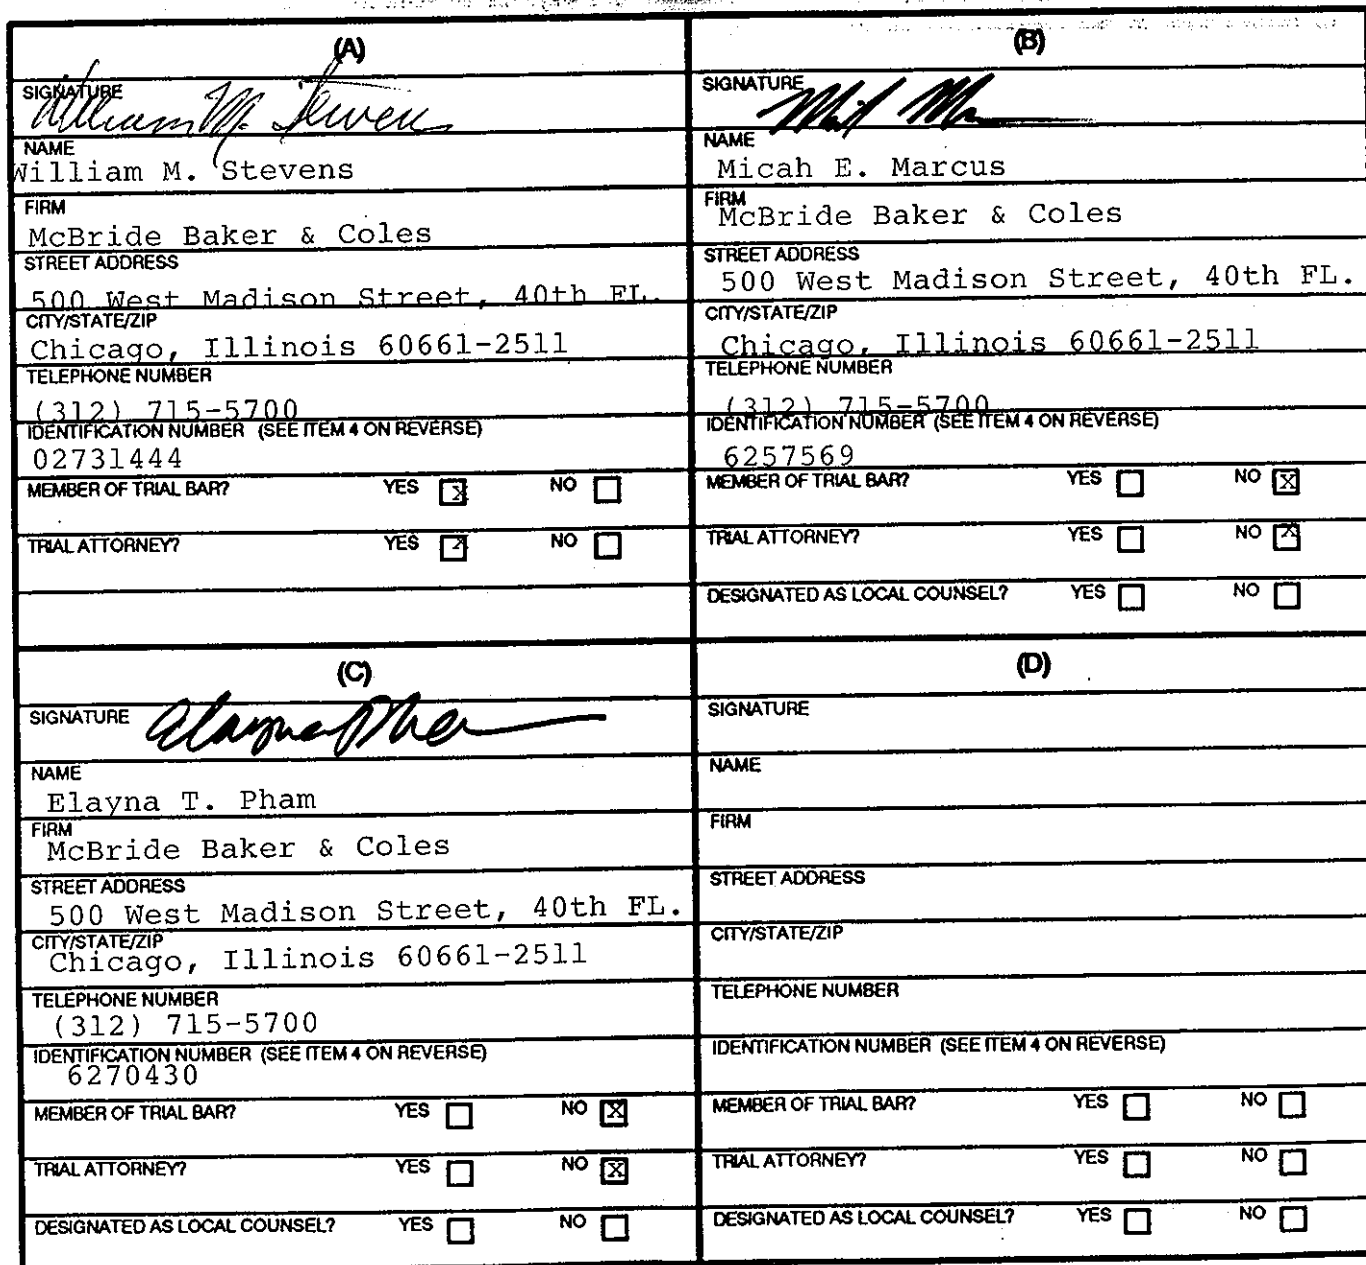 (A)
SIGNATURE
William M. Stevens
NAME
William M. Stevens
FIRM
McBride Baker & Coles
STREET ADDRESS
500 West Madison Street, 40th FL.
CITY/STATE/ZIP
Chicago, Illinois 60661-2511
TELEPHONE NUMBER
(312) 715-5700
IDENTIFICATION NUMBER (SEE ITEM 4 ON REVERSE)
02731444
MEMBER OF TRIAL BAR? YES X NO
TRIAL ATTORNEY? YES X NO
(B)
SIGNATURE
NAME
Micah E. Marcus
FIRM
McBride Baker & Coles
STREET ADDRESS
500 West Madison Street, 40th FL.
CITY/STATE/ZIP
Chicago, Illinois 60661-2511
TELEPHONE NUMBER
(312) 715-5700
IDENTIFICATION NUMBER (SEE ITEM 4 ON REVERSE)
6257569
MEMBER OF TRIAL BAR? YES NO X
TRIAL ATTORNEY? YES NO X
DESIGNATED AS LOCAL COUNSEL? YES NO
(C)
SIGNATURE Elayna Pham
NAME
Elayna T. Pham
FIRM
McBride Baker & Coles
STREET ADDRESS
500 West Madison Street, 40th FL.
CITY/STATE/ZIP
Chicago, Illinois 60661-2511
TELEPHONE NUMBER
(312) 715-5700
IDENTIFICATION NUMBER (SEE ITEM 4 ON REVERSE)
6270430
MEMBER OF TRIAL BAR? YES NO X
TRIAL ATTORNEY? YES NO X
DESIGNATED AS LOCAL COUNSEL? YES NO
(D)
SIGNATURE
NAME
FIRM
STREET ADDRESS
CITY/STATE/ZIP
TELEPHONE NUMBER
IDENTIFICATION NUMBER (SEE ITEM 4 ON REVERSE)
MEMBER OF TRIAL BAR? YES NO
TRIAL ATTORNEY? YES NO
DESIGNATED AS LOCAL COUNSEL? YES NO